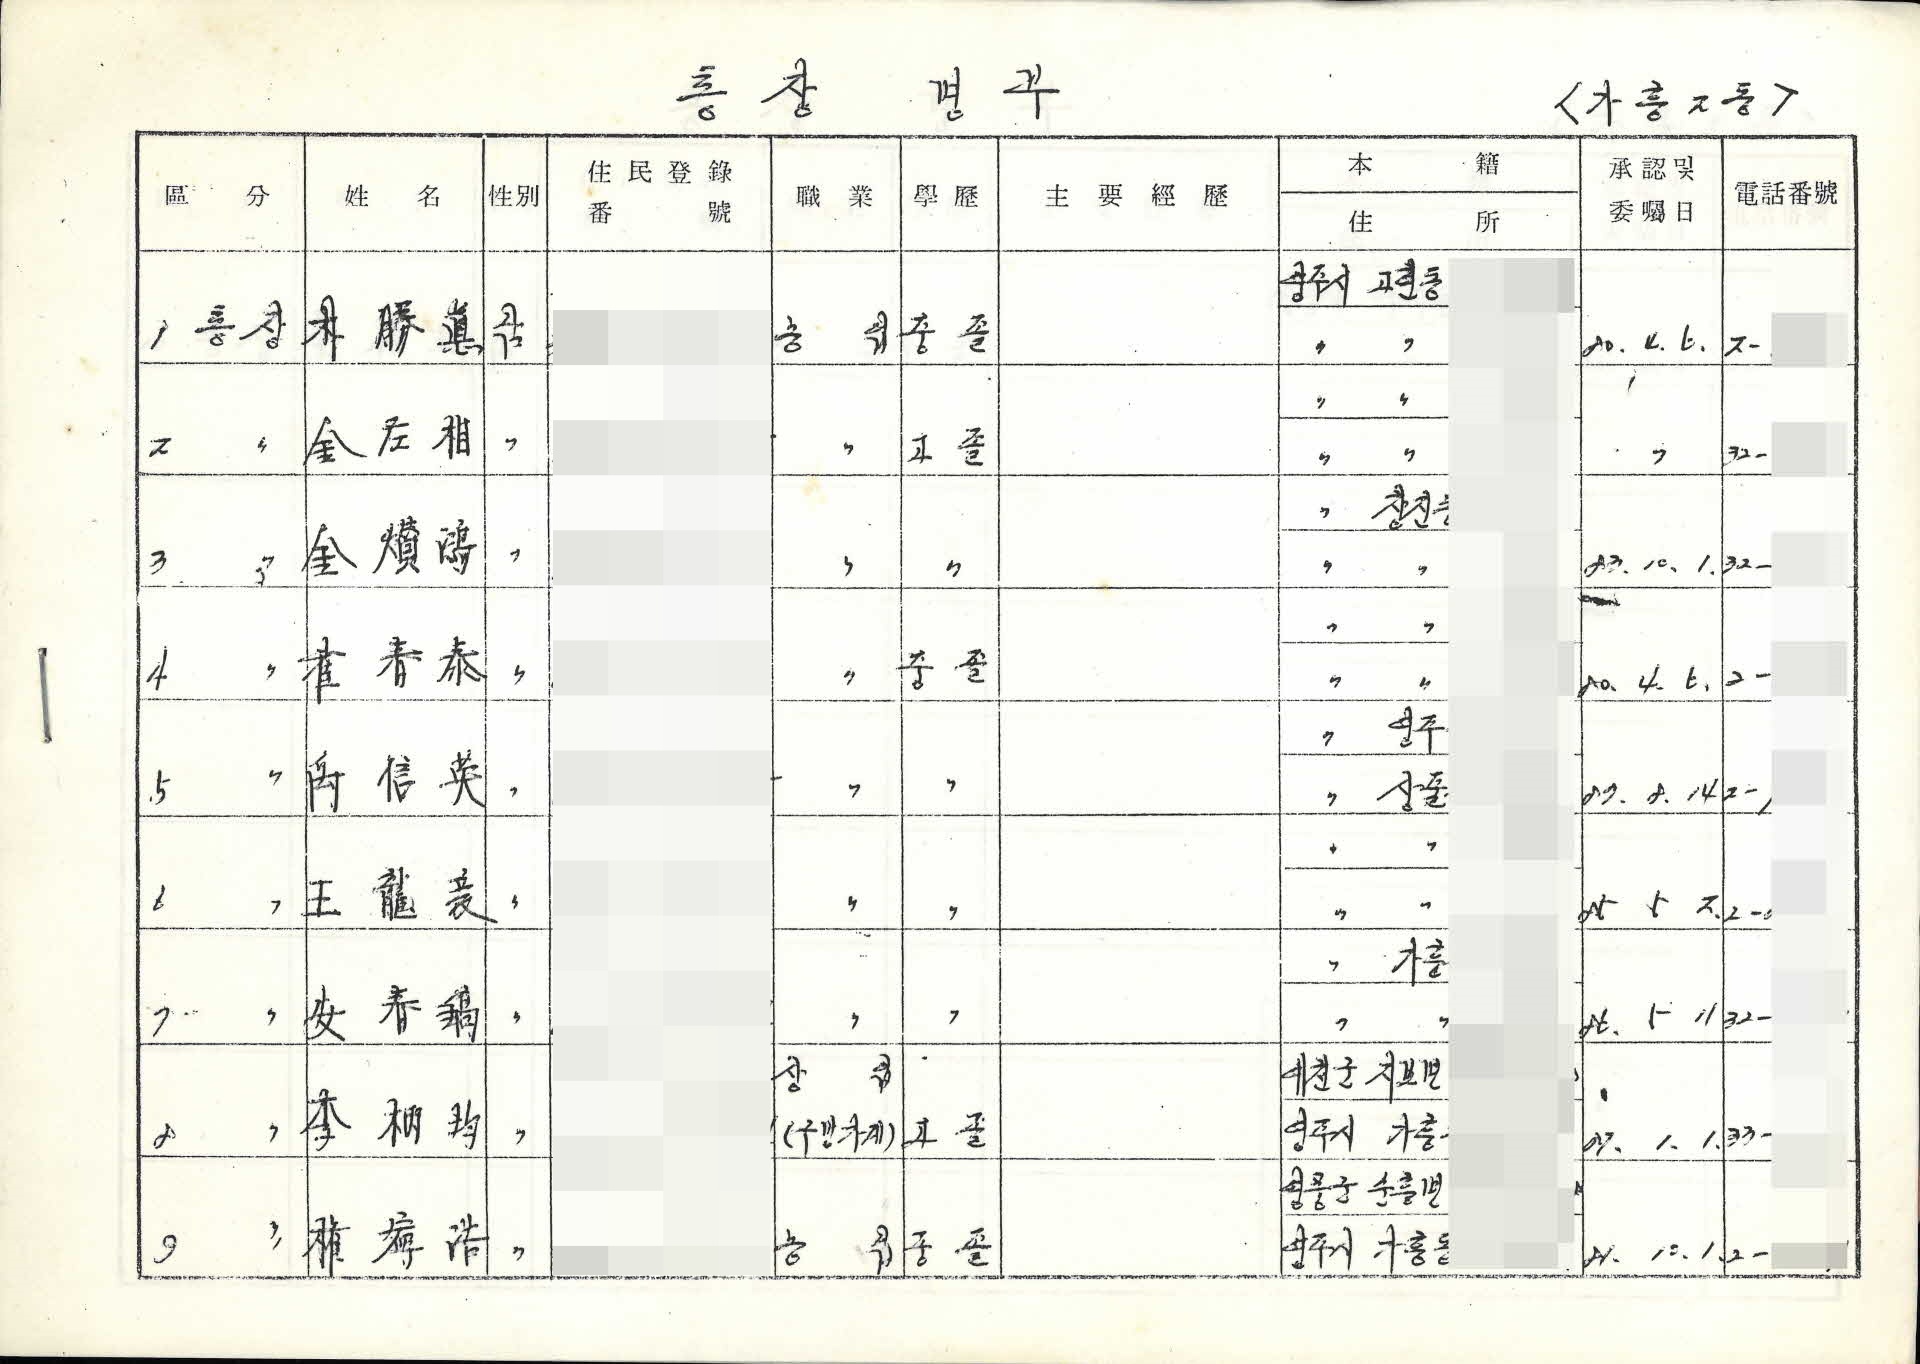 통장 명부
<가흥2동>
區分 姓名 性別 住民登錄番號 職業 學歷 主要經歷 本籍 住所 承認및委囑日 電話番號
영주시 고현동
1 통장 朴勝眞 남 농업 중졸 〃 〃 80. 4. 6. 2-
〃 〃
2 〃 金左相 〃 〃 고졸 〃 〃 〃 32-
〃 창진동
3 〃 金 鴻 〃 〃 〃 〃 〃 83. 10. 1. 32-
〃 〃
4 〃 崔春泰 〃 〃 중졸 〃 〃 80. 4. 6. 2-
〃 영주
5 〃 禹信英 〃 〃 〃 〃 상줄 87. 8. 14 2-
〃 〃
6 〃 王龍 〃 〃 〃 〃 〃 85 5 2. 2-
〃 가흥
7 〃 安春鎬 〃 〃 〃 〃 〃 86. 5 11 32-
상업 예천군 지보면
8 〃 李柄均 〃 (구반가게) 고졸 영주시 가흥 87. 1. 1. 33-
영풍군 순흥면
9 〃 權 浩 〃 농업 중졸 영주시 가흥동 81. 10. 1. 2-